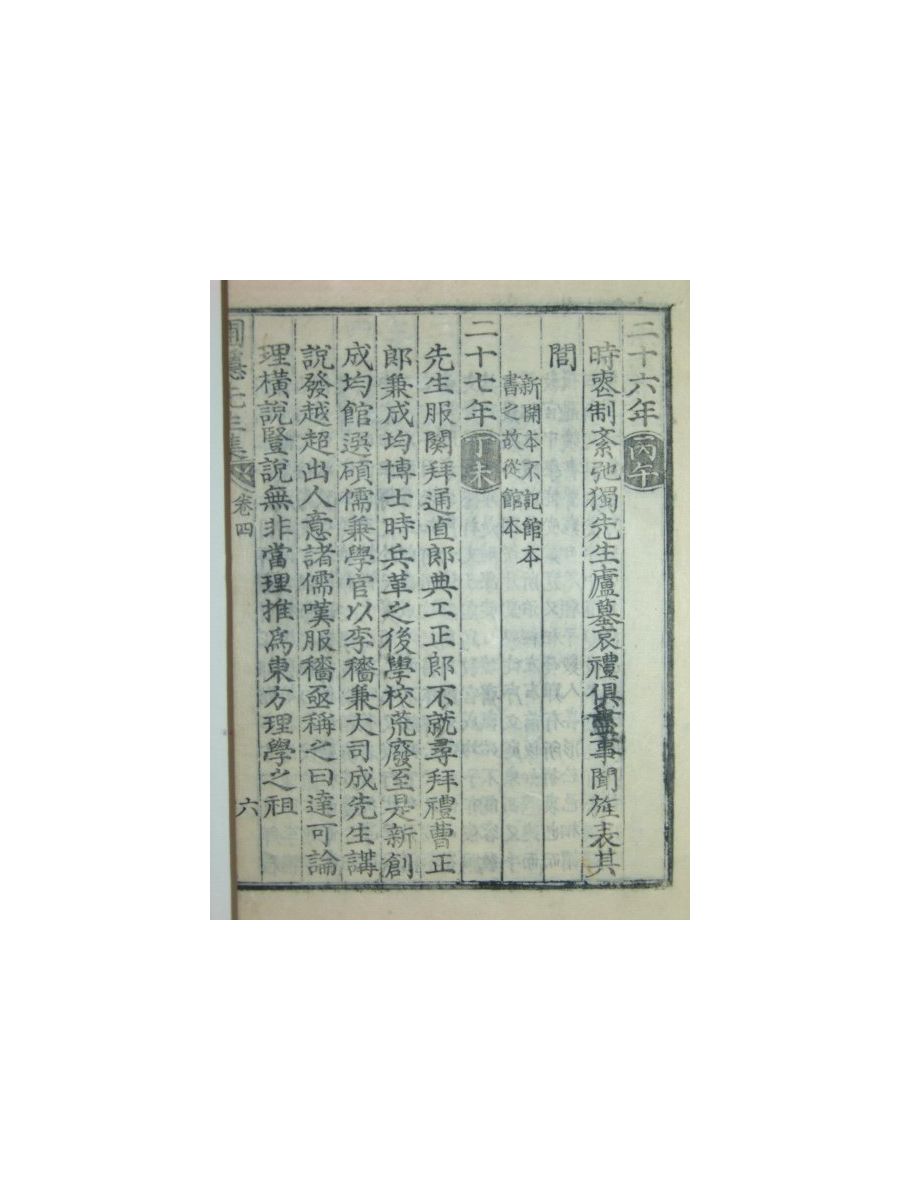 二十六年丙午
時喪制紊弛獨先生廬墓哀禮俱盡事聞㫌表其
閭
新開本不記館本
書之故從館本
二十七年丁未
先生服闋拜通直郎典工正郎不就尋拜禮曹正
郎兼成均博士時兵革之後學校荒廢至是新創
成均館選碩儒兼學官以李穡兼大司成先生講
說發越超出人意諸儒嘆服穡亟稱之曰達可論
理橫說豎說無非當理推爲東方理學之祖
圃隱先生集 卷四 六